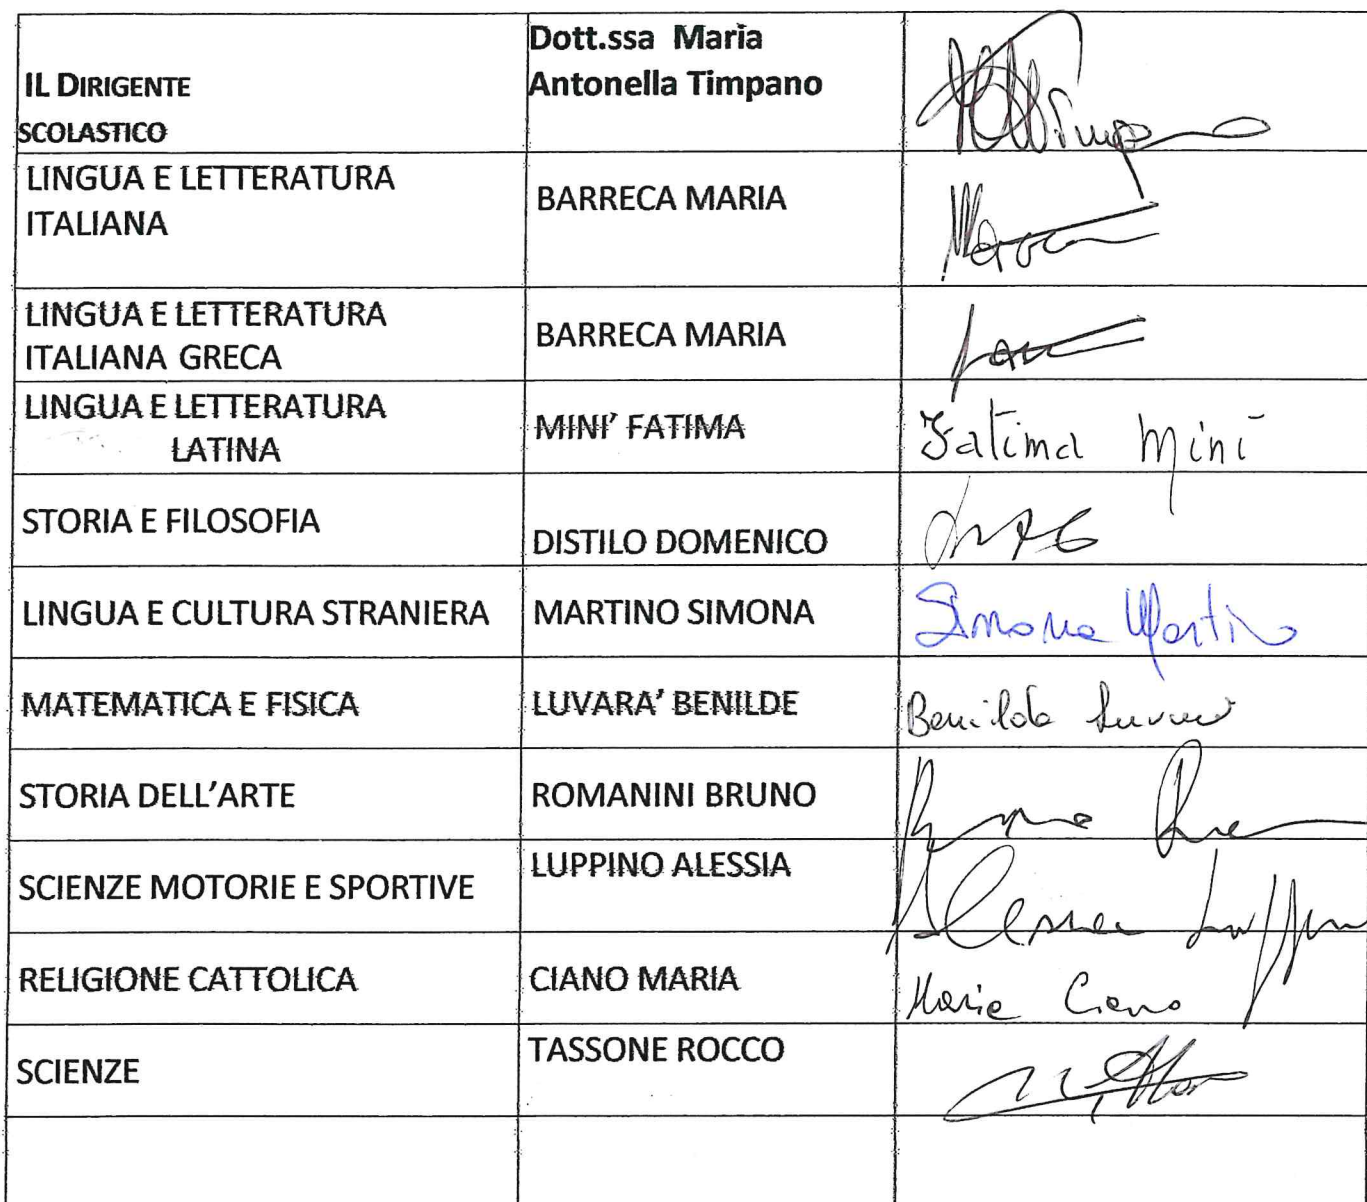 IL DIRIGENTE
SCOLASTICO
Dott.ssa Maria
Antonella Timpano
LINGUA E LETTERATURA
ITALIANA
BARRECA MARIA
LINGUA E LETTERATURA
ITALIANA GRECA
BARRECA MARIA
LINGUA E LETTERATURA
LATINA
MINI' FATIMA
Fatima Minì
STORIA E FILOSOFIA
DISTILO DOMENICO
LINGUA E CULTURA STRANIERA
MARTINO SIMONA
Simona Martino
MATEMATICA E FISICA
LUVARA' BENILDE
Benilde Luvarà
STORIA DELL'ARTE
ROMANINI BRUNO
SCIENZE MOTORIE E SPORTIVE
LUPPINO ALESSIA
Alessia Luppino
RELIGIONE CATTOLICA
CIANO MARIA
Maria Ciano
SCIENZE
TASSONE ROCCO